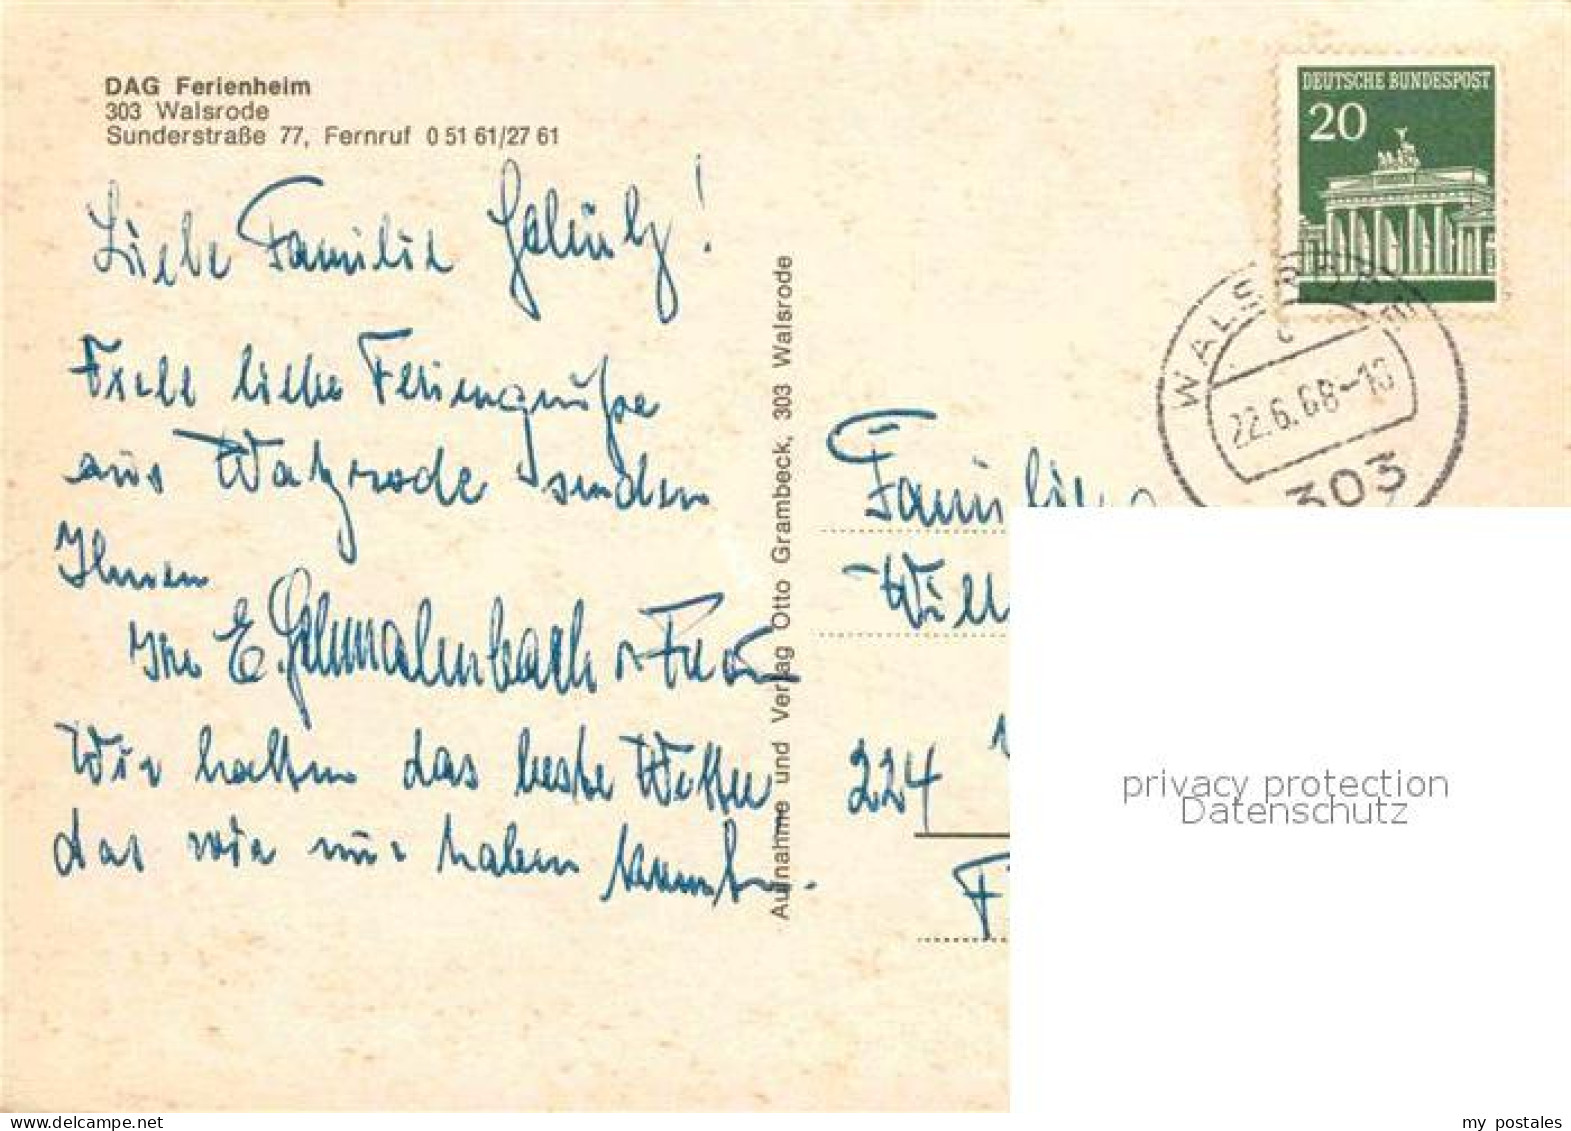 DAG Ferienheim
303 Walsrode
Sunderstraße 77, Fernruf 0 51 61/27 61
Liebe Familie !
Viele liebe Feriengrüße
aus Walsrode senden
Ihnen
Ihr E. Schmalenbach u. Frau
Wir hatten das beste Wetter
das wir nur haben konnten.
Aufnahme und Verlag Otto Grambeck, 303 Walsrode
DEUTSCHE BUNDESPOST
20
WALSRODE
c
22.6.68-18
303
Familie
224
privacy protection
Datenschutz
my postales